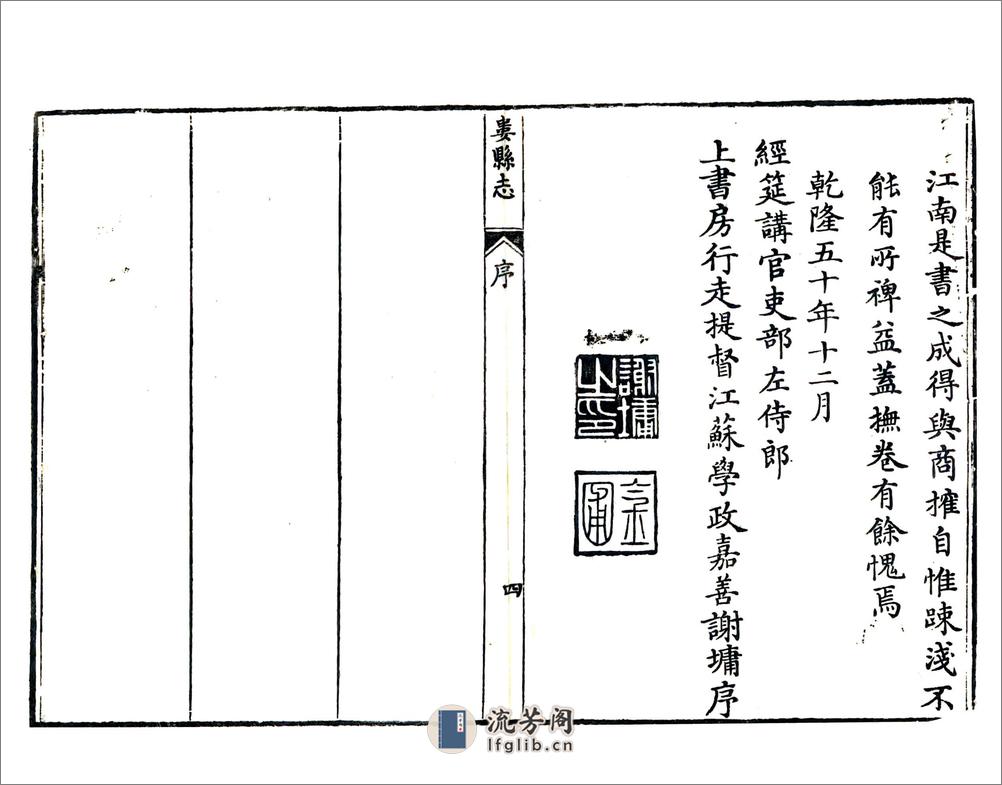 江南是書之成得與商搉自惟疎淺不
能有所裨益蓋撫卷有餘愧焉
乾隆五十年十二月
經筵講官吏部左侍郎
上書房行走提督江蘇學政嘉善謝墉序
謝墉之印
金圃
婁縣志
序
四
流芳阁
lfglib.cn